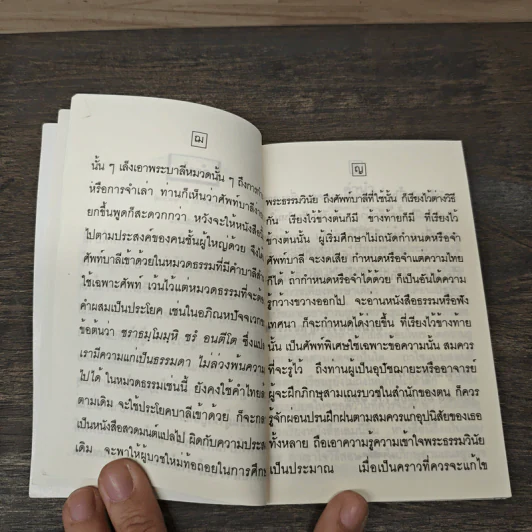 ฌ
นั้น ๆ เล็งเอาพระบาลีหมวดนั้น ๆ ถึงการ
หรือการจำเล่า ท่านก็เห็นว่าศัพท์บาลี
ยกขึ้นพูดก็สะดวกกว่า หวังจะให้หนังสือ
ไปตามประสงค์ของคนชั้นผู้ใหญ่ด้วย จึงได้
ศัพท์บาลีเข้าด้วยในหมวดธรรมที่มีคำบาลี
ใช้เฉพาะศัพท์ เว้นไว้แต่หมวดธรรมที่จะ
คำผสมเป็นประโยค เช่นในอภิณหปัจจเวกขณ
ข้อต้นว่า ชราธมฺโมมฺหิ ชรํ อนตีโต ซึ่งแปล
เรามีความแก่เป็นธรรมดา ไม่ล่วงพ้นความ
ไปได้ ในหมวดธรรมเช่นนี้ ยังคงใช้คำไทย
ตามเดิม จะใช้ประโยคบาลีเข้าด้วย ก็จะ
เป็นหนังสือสวดมนต์แปลไป ผิดกับความประส
เดิม จะพาให้ผู้บวชใหม่ท้อถอยในการศึก
ญ
พระธรรมวินัย ถึงศัพท์บาลีที่ใช้นั้น ก็เรียงไว้ต่างวิธี
กัน เรียงไว้ข้างต้นก็มี ข้างท้ายก็มี ที่เรียงไว้
ข้างต้นนั้น ผู้เริ่มศึกษาไม่ถนัดกำหนดหรือจำ
ศัพท์บาลี จะงดเสีย กำหนดหรือจำแต่ความไทย
ก็ได้ ถ้ากำหนดหรือจำได้ด้วย ก็เป็นอันได้ความ
รู้กว้างขวางออกไป จะอ่านหนังสือธรรมหรือฟัง
เทศนา ก็จะกำหนดได้ง่ายขึ้น ที่เรียงไว้ข้างท้าย
นั้น เป็นศัพท์พิเศษใช้เฉพาะข้อความนั้น สมควร
ที่จะรู้ไว้ ถึงท่านผู้เป็นอุปัชฌายะหรืออาจารย์
ผู้จะฝึกภิกษุสามเณรบวชในสำนักของตน ก็ควร
รู้จักผ่อนปรนฝึกฝนตามสมควรแก่อุปนิสัยของเธอ
ทั้งหลาย ถือเอาความรู้ความเข้าใจพระธรรมวินัย
เป็นประมาณ เมื่อเป็นคราวที่ควรจะแก้ไข